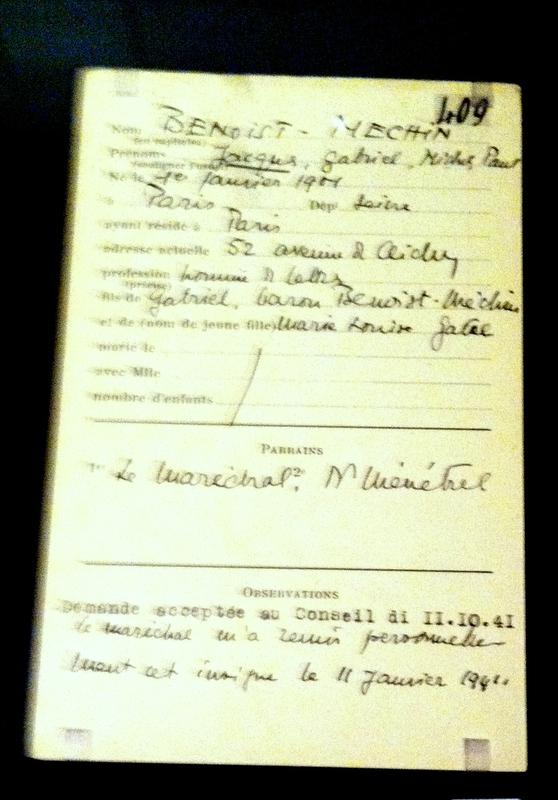 409
Nom BENOIST - MECHIN
(en capitales)
Prénoms Jacques, Gabriel, Michel, Paul
(souligner l'usuel)
Né le 1er Janvier 1901
à Paris Dép Seine
ayant résidé à Paris
adresse actuelle 52 avenue de Clichy
profession homme de lettres
(précise)
fils de Gabriel, baron Benoist-Méchin
et de (nom de jeune fille) Marie Louise
marié le
avec Mlle
nombre d'enfants
PARRAINS
1° Le Maréchal 2° Dr Ménétrel
OBSERVATIONS
Demande acceptée au Conseil di II.IO.4I
Le maréchal m'a remis personnelle-
ment cet insigne le 11 Janvier